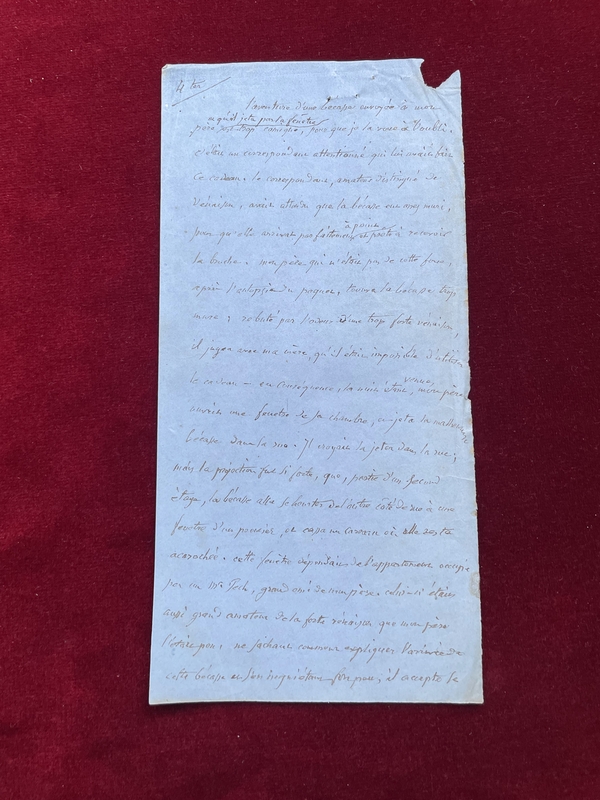 4 ter
L'aventure d'une bécasse envoyée à mon
et qu'il jeta par la fenêtre
père est trop comique, pour que je la voue à l'oubli.
c'était un correspondant attentionné qui lui avait fait
ce cadeau. le correspondant, amateur distingué de
Venaison, avait attendu que la bécasse eut assez muri,
pour qu'elle arrivat parfaitement à point et prête à recevoir
la broche. mon père qui n'était pas de cette force,
après l'autopsie du paquet, trouva la bécasse trop
mure ; rebuté par l'odeur d'une trop forte venaison,
il jugea avec ma mère, qu'il était impossible d'utiliser
le cadeau — en conséquence, la nuit étant venue, mon père
ouvrit une fenêtre de sa chambre, et jeta la malheureuse
bécasse dans la rue. Il croyait la jeter dans la rue ;
mais la projection fut si forte, que, partie d'un second
étage, la bécasse alla se heurter de l'autre côté de rue à une
fenêtre d'un premier, et cassa un carreau où elle resta
accrochée. cette fenêtre dépendait de l'appartement occupé
par un Mr Pech, grand ami de mon père. celui-ci était
aussi grand amateur de la forte venaison que mon père
l'était peu ; ne sachant comment expliquer l'arrivée de
cette bécasse et s'en inquiétant fort peu, il accepta le